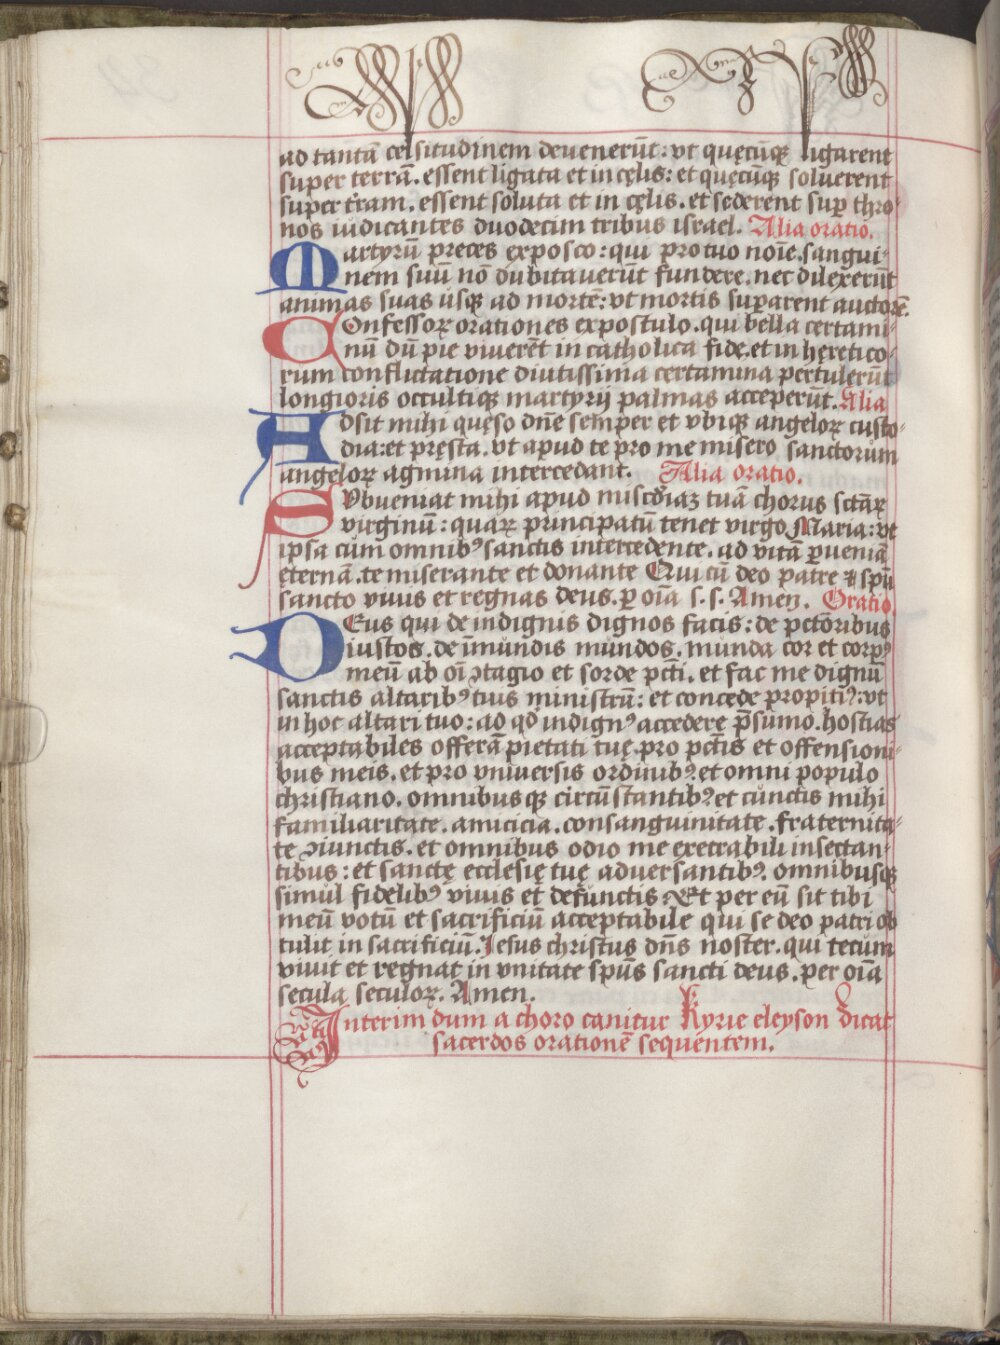 ad tantā celsitudinem deuenerūt: vt quęcūqꝫ ligarent
super terrā. essent ligata et in cęlis: et quęcūqꝫ soluerent
super t̄ram. essent soluta et in cęlis. et sederent suꝑ thro-
nos iudicantes duodecim tribus israel. Alia oratio.
Martyrū preces exposco: qui pro tuo noīe. sangui-
nem suū nō dubitauerūt fundere. nec dilexerūt
animas suas usqꝫ ad mortē: vt mortis suꝑarent auctorē.
Confessoꝝ orationes expostulo. qui bella certami-
nū dū pie viuerēt in catholica fide. et in hęretico-
rum conflictatione diutissima certamina pertulerūt
longioris occultiqꝫ martyrij palmas acceperūt. Alia
Adsit mihi quęso dn̄e semper et vbiqꝫ angeloꝝ custo-
dia: et pręsta. vt apud te pro me misero sanctorum
angeloꝝ agmina intercedant. Alia oratio.
Subueniat mihi apud misc̄diaꝫ tuā chorus sctāꝝ
virginū: quaꝝ principatū tenet virgo Maria: vt
ipsa cum omnibꝰ sanctis intercedente. ad vitā ꝑueniā
ęternā. te miserante et donante Qui cū deo patre ⁊ spū
sancto viuis et regnas deus. ꝑ oīa s. s. Amen. Oratio.
Deus qui de indignis dignos facis: de pctōribus
iustos. de īmūndis mūndos. munda cor et corpꝰ
meū ab oī ꝯtagio et sorde pctī. et fac me dignū
sanctis altaribꝰ tuis ministrū: et concede propitiꝰ: vt
in hoc altari tuo: ad qd̄ indignꝰ accedere p̄sumo. hostias
acceptabiles offerā pietati tuę. pro pctīs et offensioni-
bus meis. et pro vniuersis ordinibꝰ. et omni populo
christiano. omnibusqꝫ circūstantibꝰ. et cūnctis mihi
familiaritate. amicicia. consanguinitate. fraternita-
te ꝯiunctis. et omnibus odio me execrabili insectan-
tibus: et sanctę ecclesię tuę aduersantibꝰ. omnibusqꝫ
simul fidelibꝰ viuis et defunctis. Et per eū sit tibi
meū votū et sacrificiū acceptabile qui se deo patri ob
tulit in sacrificiū. Jesus christus dn̄s noster. qui tecum
viuit et regnat in vnitate spūs sancti deus. per oīa
secula seculoꝝ. Amen.
Interim dum a choro canitur Kyrie eleyson dicat
sacerdos orationē sequentem.